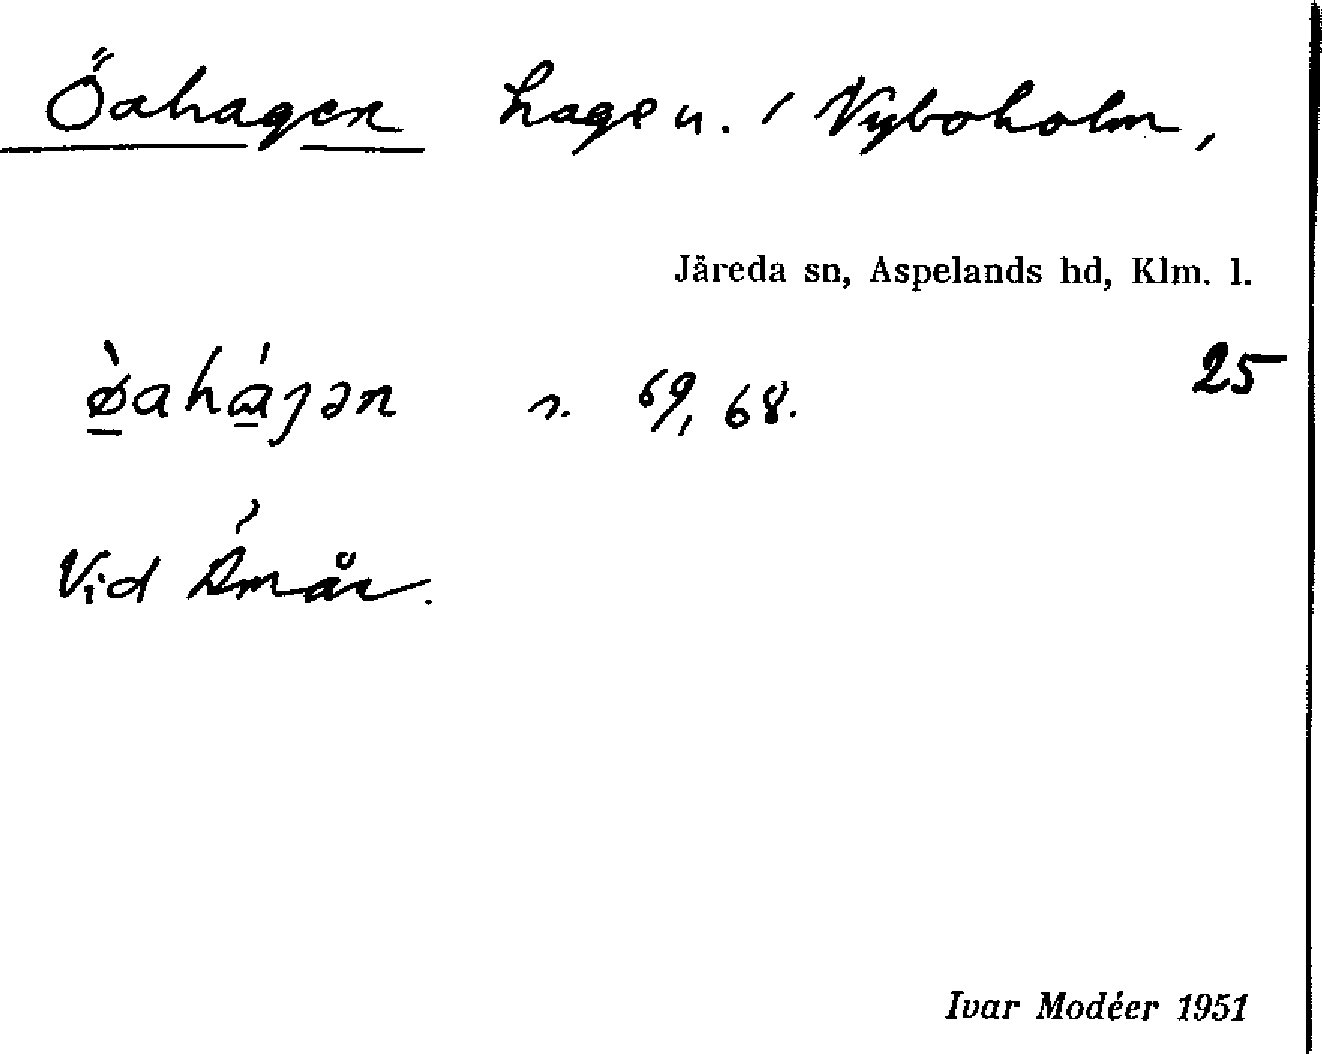 Öahagen hage n. i Nyboholm,
Järeda sn, Aspelands hd, Klm. l.
ø̀aháȷən s. 69, 68. 25
Vid Åmår.
Ivar Modéer 1951